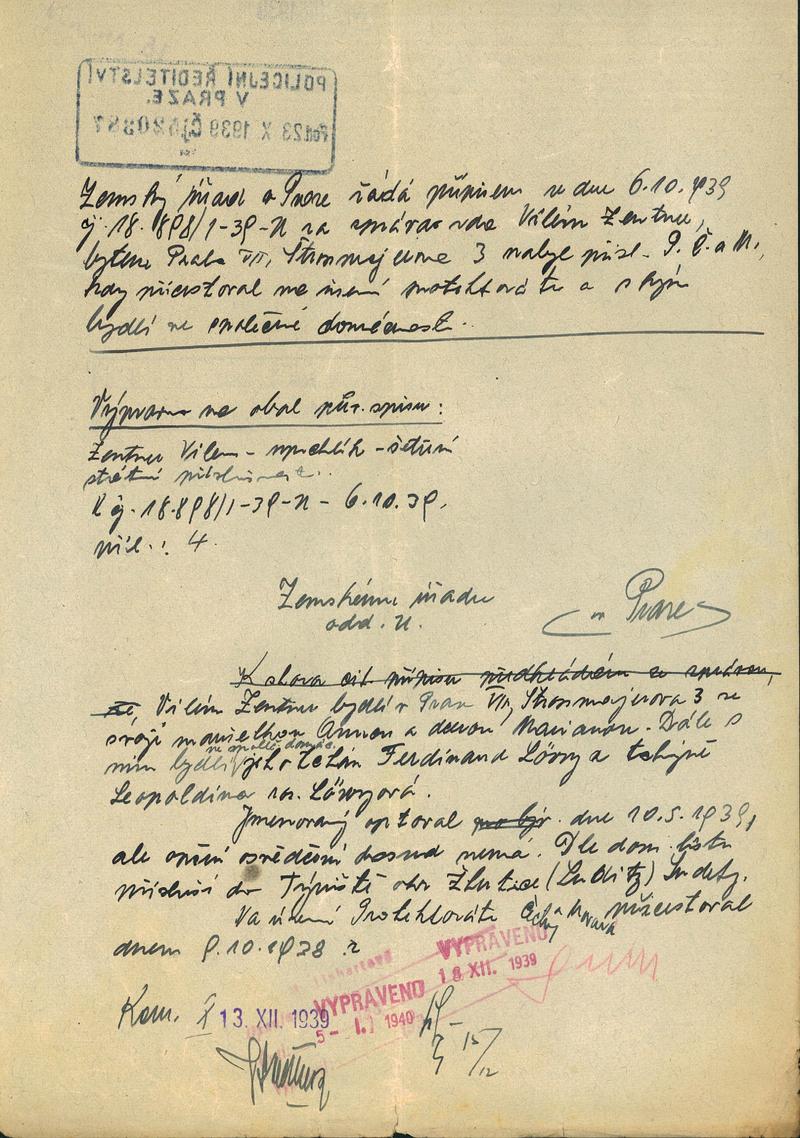 POLICEJNÍ ŘEDITELSTVÍ
V PRAZE.
23 X 1939 Čj.
Zemský úřad v Praze žádá přípisem ze dne 6.10.939
čj. 18.898/1-39-II za zprávu zda Vilém Zentner,
bytem Praha VII, Štrossmajerova 3 nabyl přísl. P. Č. a M.,
kdy přicestoval na území protektorátu a s kým
bydlí ve společné domácnosti.
Výprava na obal pův. spisu:
Zentner Vilém - uprchlík - šetření
státní příslušnost.
K čj. 18.898/1-39-II - 6.10.39.
příl.: 4.
Zemskému úřadu
odd. II. v Praze
K slova cit. přípisu předkládám se zprávou,
že, Vilém Zentner bydlí v Praze VII, Strossmajerova 3 se
svojí manželkou Annou a dcerou Marianou. Dále s
ním bydlí ve společ. domác. jeho tchán Ferdinand Löwy a tchýně
Leopoldina roz. Löwyová.
Jmenovaný optoval dne 10.5.1939,
ale opční osvědčení dosud nemá. Dle dom. listu
přísluší do Týniště okr. Žlutice (Luditz) Sudety.
Na území Protektorátu Čechy a Morava přicestoval
dnem 9.10.1938 z
VYPRAVENO
18 XII. 1939
VYPRAVENO
5 - I. 1940
Kom. 13. XII. 1939
15/12